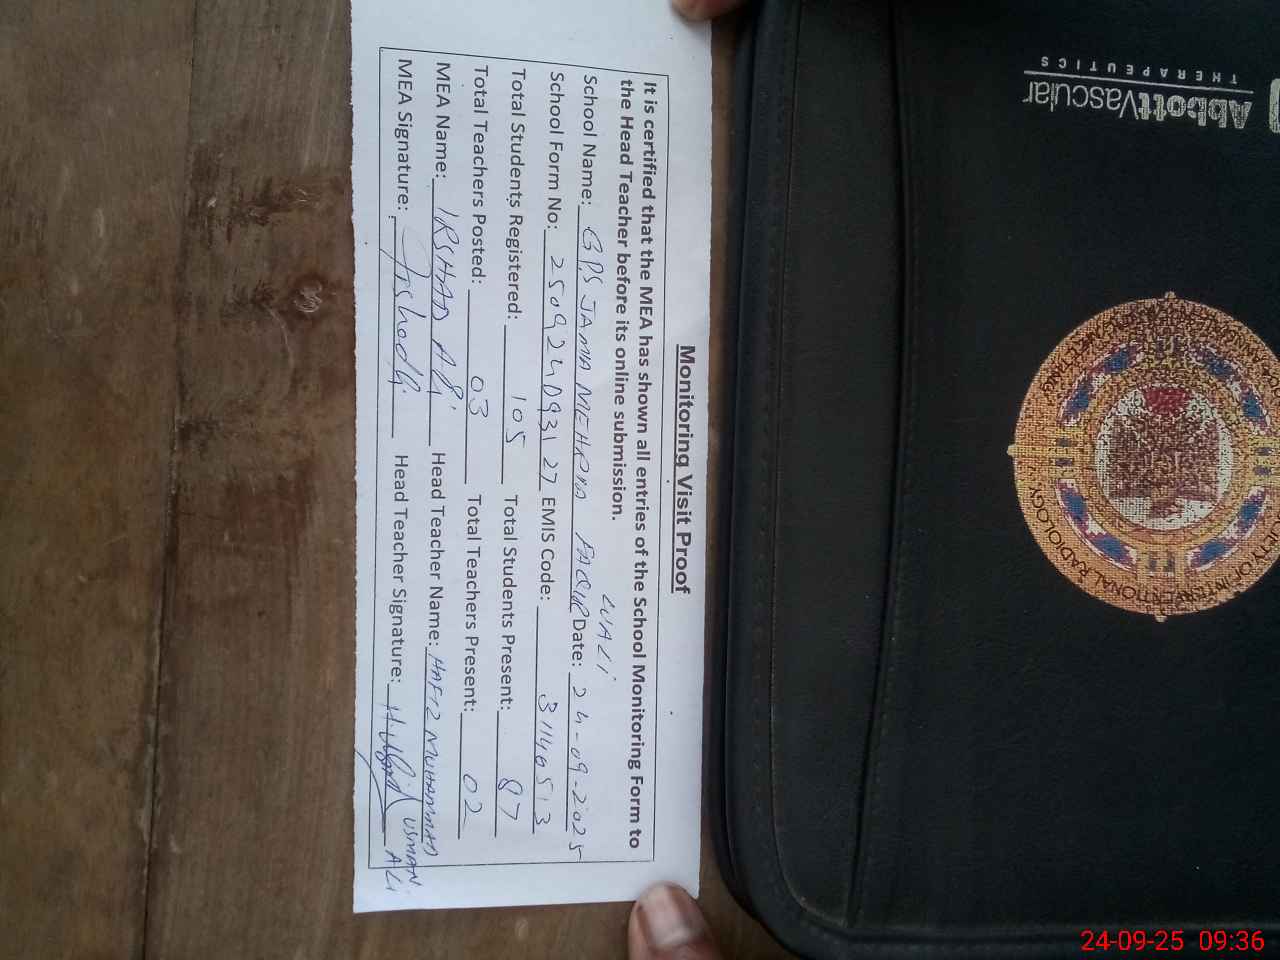 Monitoring Visit Proof
It is certified that the MEA has shown all entries of the School Monitoring Form to
the Head Teacher before its online submission.
School Name: GPS JAMA MEHRIA FAQIR WALI Date: 24-09-2025
School Form No: 250924093127 EMIS Code: 31140513
Total Students Registered: 105 Total Students Present: 87
Total Teachers Posted: 03 Total Teachers Present: 02
MEA Name: IRSHAD ALI Head Teacher Name: HAFIZ MUHAMMAD USMAN ALI
MEA Signature: Irshad Ali Head Teacher Signature:
AbbottVascular
THERAPEUTICS
SOCIETY OF INTERVENTIONAL RADIOLOGY
24-09-25 09:36